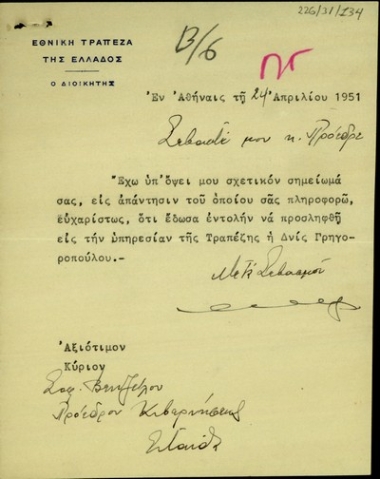 226/31/134
ΕΘΝΙΚΗ ΤΡΑΠΕΖΑ
ΤΗΣ ΕΛΛΑΔΟΣ
Ο ΔΙΟΙΚΗΤΗΣ
Β/6
Ἐν Ἀθήναις τῇ 24 Ἀπριλίου 1951
Σεβαστέ μου κ. Πρόεδρε
Ἔχω ὑπ' ὄψει μου σχετικόν σημείωμά
σας, εἰς ἀπάντησιν τοῦ ὁποίου σᾶς πληροφορῶ,
εὐχαρίστως, ὅτι ἔδωσα ἐντολήν νά προσληφθῇ
εἰς τήν ὑπηρεσίαν τῆς Τραπέζης ἡ Δνίς Γρηγο-
ροπούλου.-
Μετά Σεβασμοῦ
Ἀξιότιμον
Κύριον
Σοφ. Βενιζέλον
Πρόεδρον Κυβερνήσεως
Ἐνταῦθα